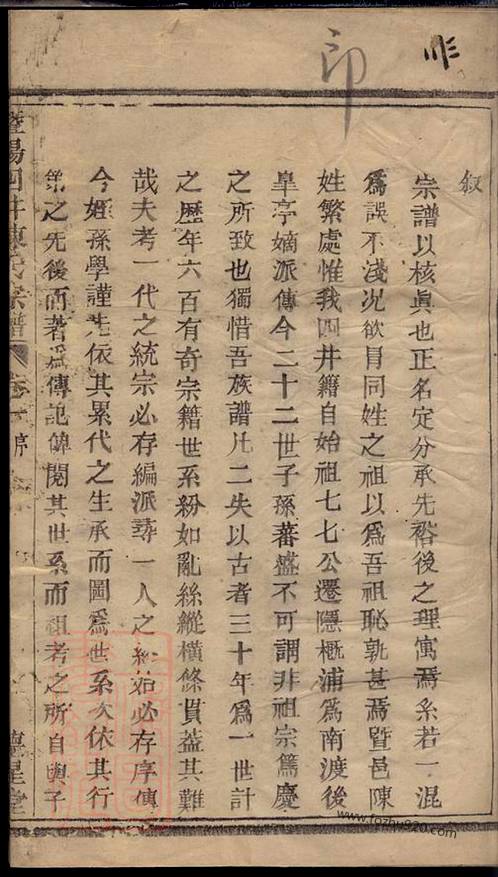 昨
印
叙
宗譜以核眞也正名定分承先裕後之理寓焉系若一混
爲誤不淺況欲冐同姓之祖以爲吾祖恥孰甚焉曁邑陳
姓繁處惟我四井籍自始祖七七公遷隱槪浦爲南渡後
皐亭嫡派傳今二十二世子孫蕃盛不可謂非祖宗篤慶
之所致也獨惜吾族譜凡二失以古者三十年爲一世計
之歷年六百有奇宗籍世系紛如亂絲縱橫條貫葢其難
哉夫考一代之統宗必存編派尋一人之終始必存序傳
今姪孫學謹先依其累代之生承而圖爲世系次依其行
第之先後而著爲傳記俾閱其世系而祖考之所自與子
曁陽四井陳氏宗譜 卷一 序 德星堂
www.fozhu920.com